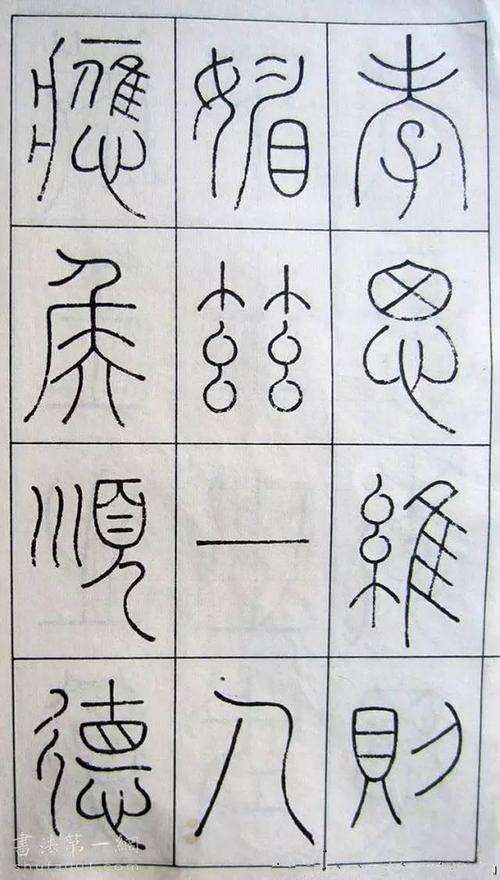 孝思維則
媚茲一人
應侯順德
書法第一網